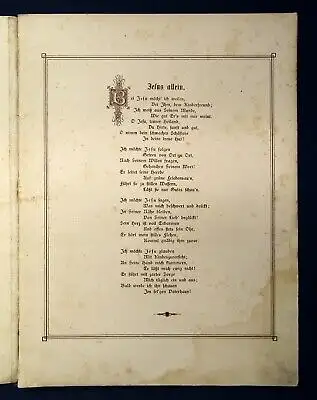 Jesus allein.
Bei Jesu möcht' ich weilen,
Bei Ihm, dem Kinderfreund;
Ich weiß aus Seinem Munde,
Wie gut Er's mit mir meint.
O Jesu, teurer Heiland,
Du Hirte, sanft und gut,
O nimm dein schwaches Schäflein
In deine treue Hut!
Ich möchte Jesu folgen
Getreu von Ort zu Ort,
Nach Seinem Willen fragen,
Gehorchen Seinem Wort!
Er leitet seine Herde
Auf grüne Friedensau'n,
Führt sie zu stillen Wassern,
Läßt sie nur Gutes schau'n.
Ich möchte Jesu sagen,
Was mich beschwert und drückt;
In Seiner Nähe bleiben,
Von Seiner Lieb' beglückt!
Sein Herz ist voll Erbarmen
Und offen stets sein Ohr,
Er hört mein stilles Flehen,
Kommt gnädig ihm zuvor.
Ich möchte Jesu glauben
Mit Kindeszuversicht,
An Seine Hand mich klammern,
Er läßt mich ewig nicht!
Er führt mit zarter Sorge
Mich täglich ein und aus;
Bald werde ich ihn schauen
Im sel'gen Vaterhaus!